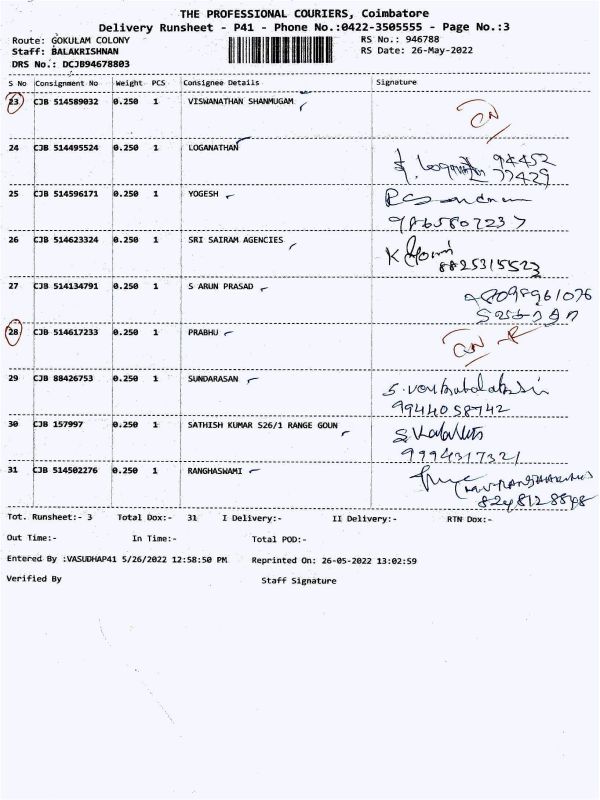 THE PROFESSIONAL COURIERS, Coimbatore
Delivery Runsheet - P41 - Phone No.:0422-3505555 - Page No.:3
Route: GOKULAM COLONY RS No.: 946788
Staff: BALAKRISHNAN RS Date: 26-May-2022
DRS No.: DCJB94678803
S No Consignment No Weight PCS Consignee Details Signature
23 CJB 514589032 0.250 1 VISWANATHAN SHANMUGAM
24 CJB 514495524 0.250 1 LOGANATHAN
94452
77429
25 CJB 514596171 0.250 1 YOGESH
9865807237
26 CJB 514623324 0.250 1 SRI SAIRAM AGENCIES
8825315523
27 CJB 514134791 0.250 1 S ARUN PRASAD
28 CJB 514617233 0.250 1 PRABHU
29 CJB 88426753 0.250 1 SUNDARASAN
9944058742
30 CJB 157997 0.250 1 SATHISH KUMAR S26/1 RANGE GOUN
9994317321
31 CJB 514502276 0.250 1 RANGHASWAMI
Tot. Runsheet:- 3 Total Dox:- 31 I Delivery:- II Delivery:- RTN Dox:-
Out Time:- In Time:- Total POD:-
Entered By :VASUDHAP41 5/26/2022 12:58:50 PM Reprinted On: 26-05-2022 13:02:59
Verified By Staff Signature